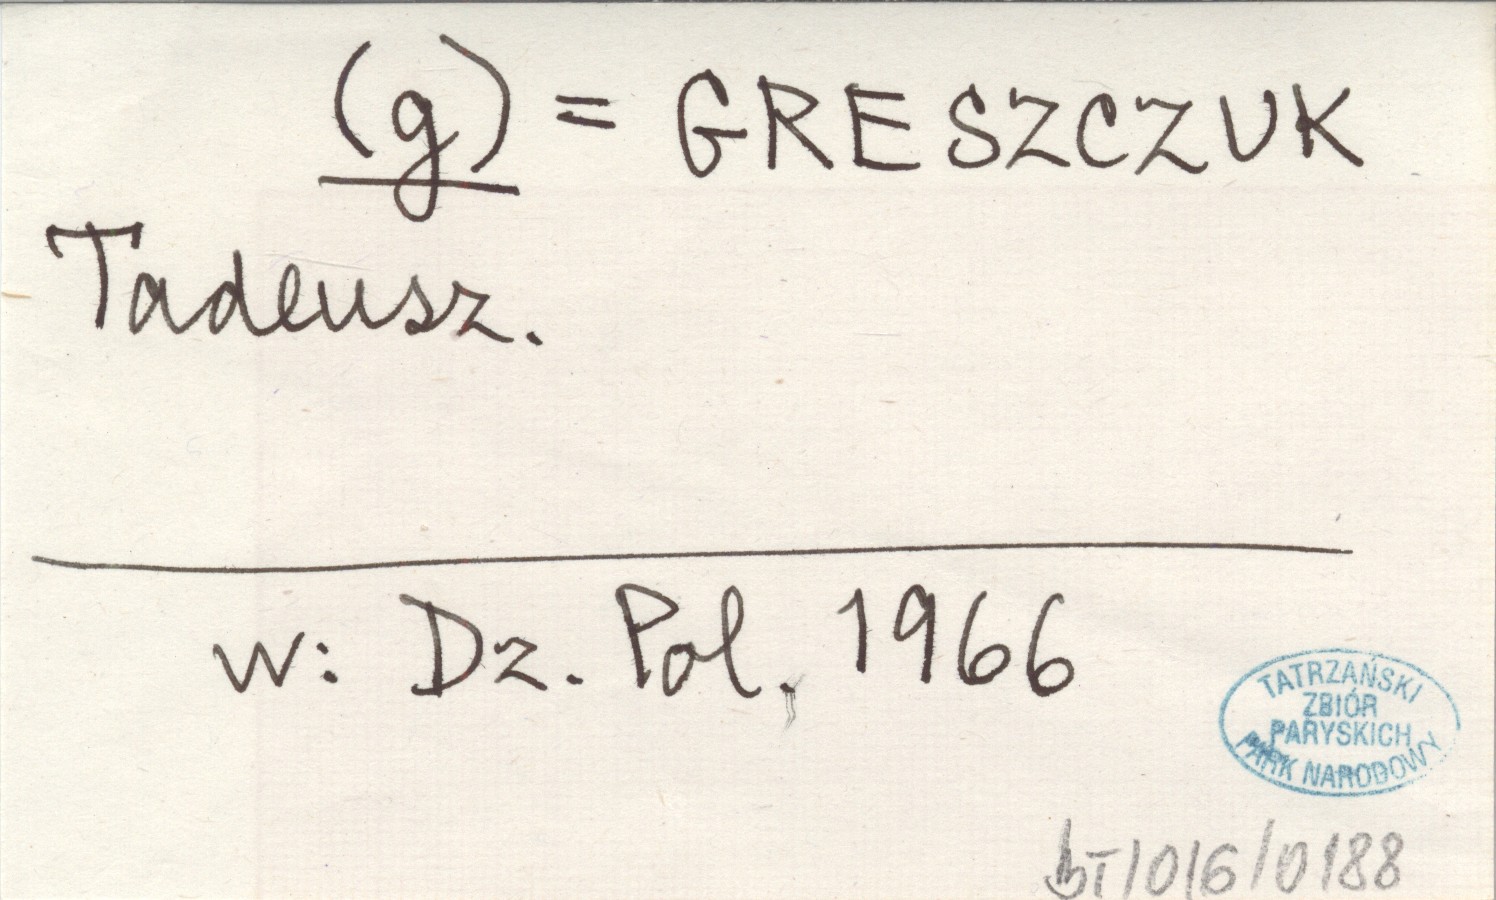 (g) = GRESZCZUK
Tadeusz.
w: Dz. Pol. 1966
TATRZAŃSKI
ZBIÓR
PARYSKICH
PARK NARODOWY
bT/016/0188